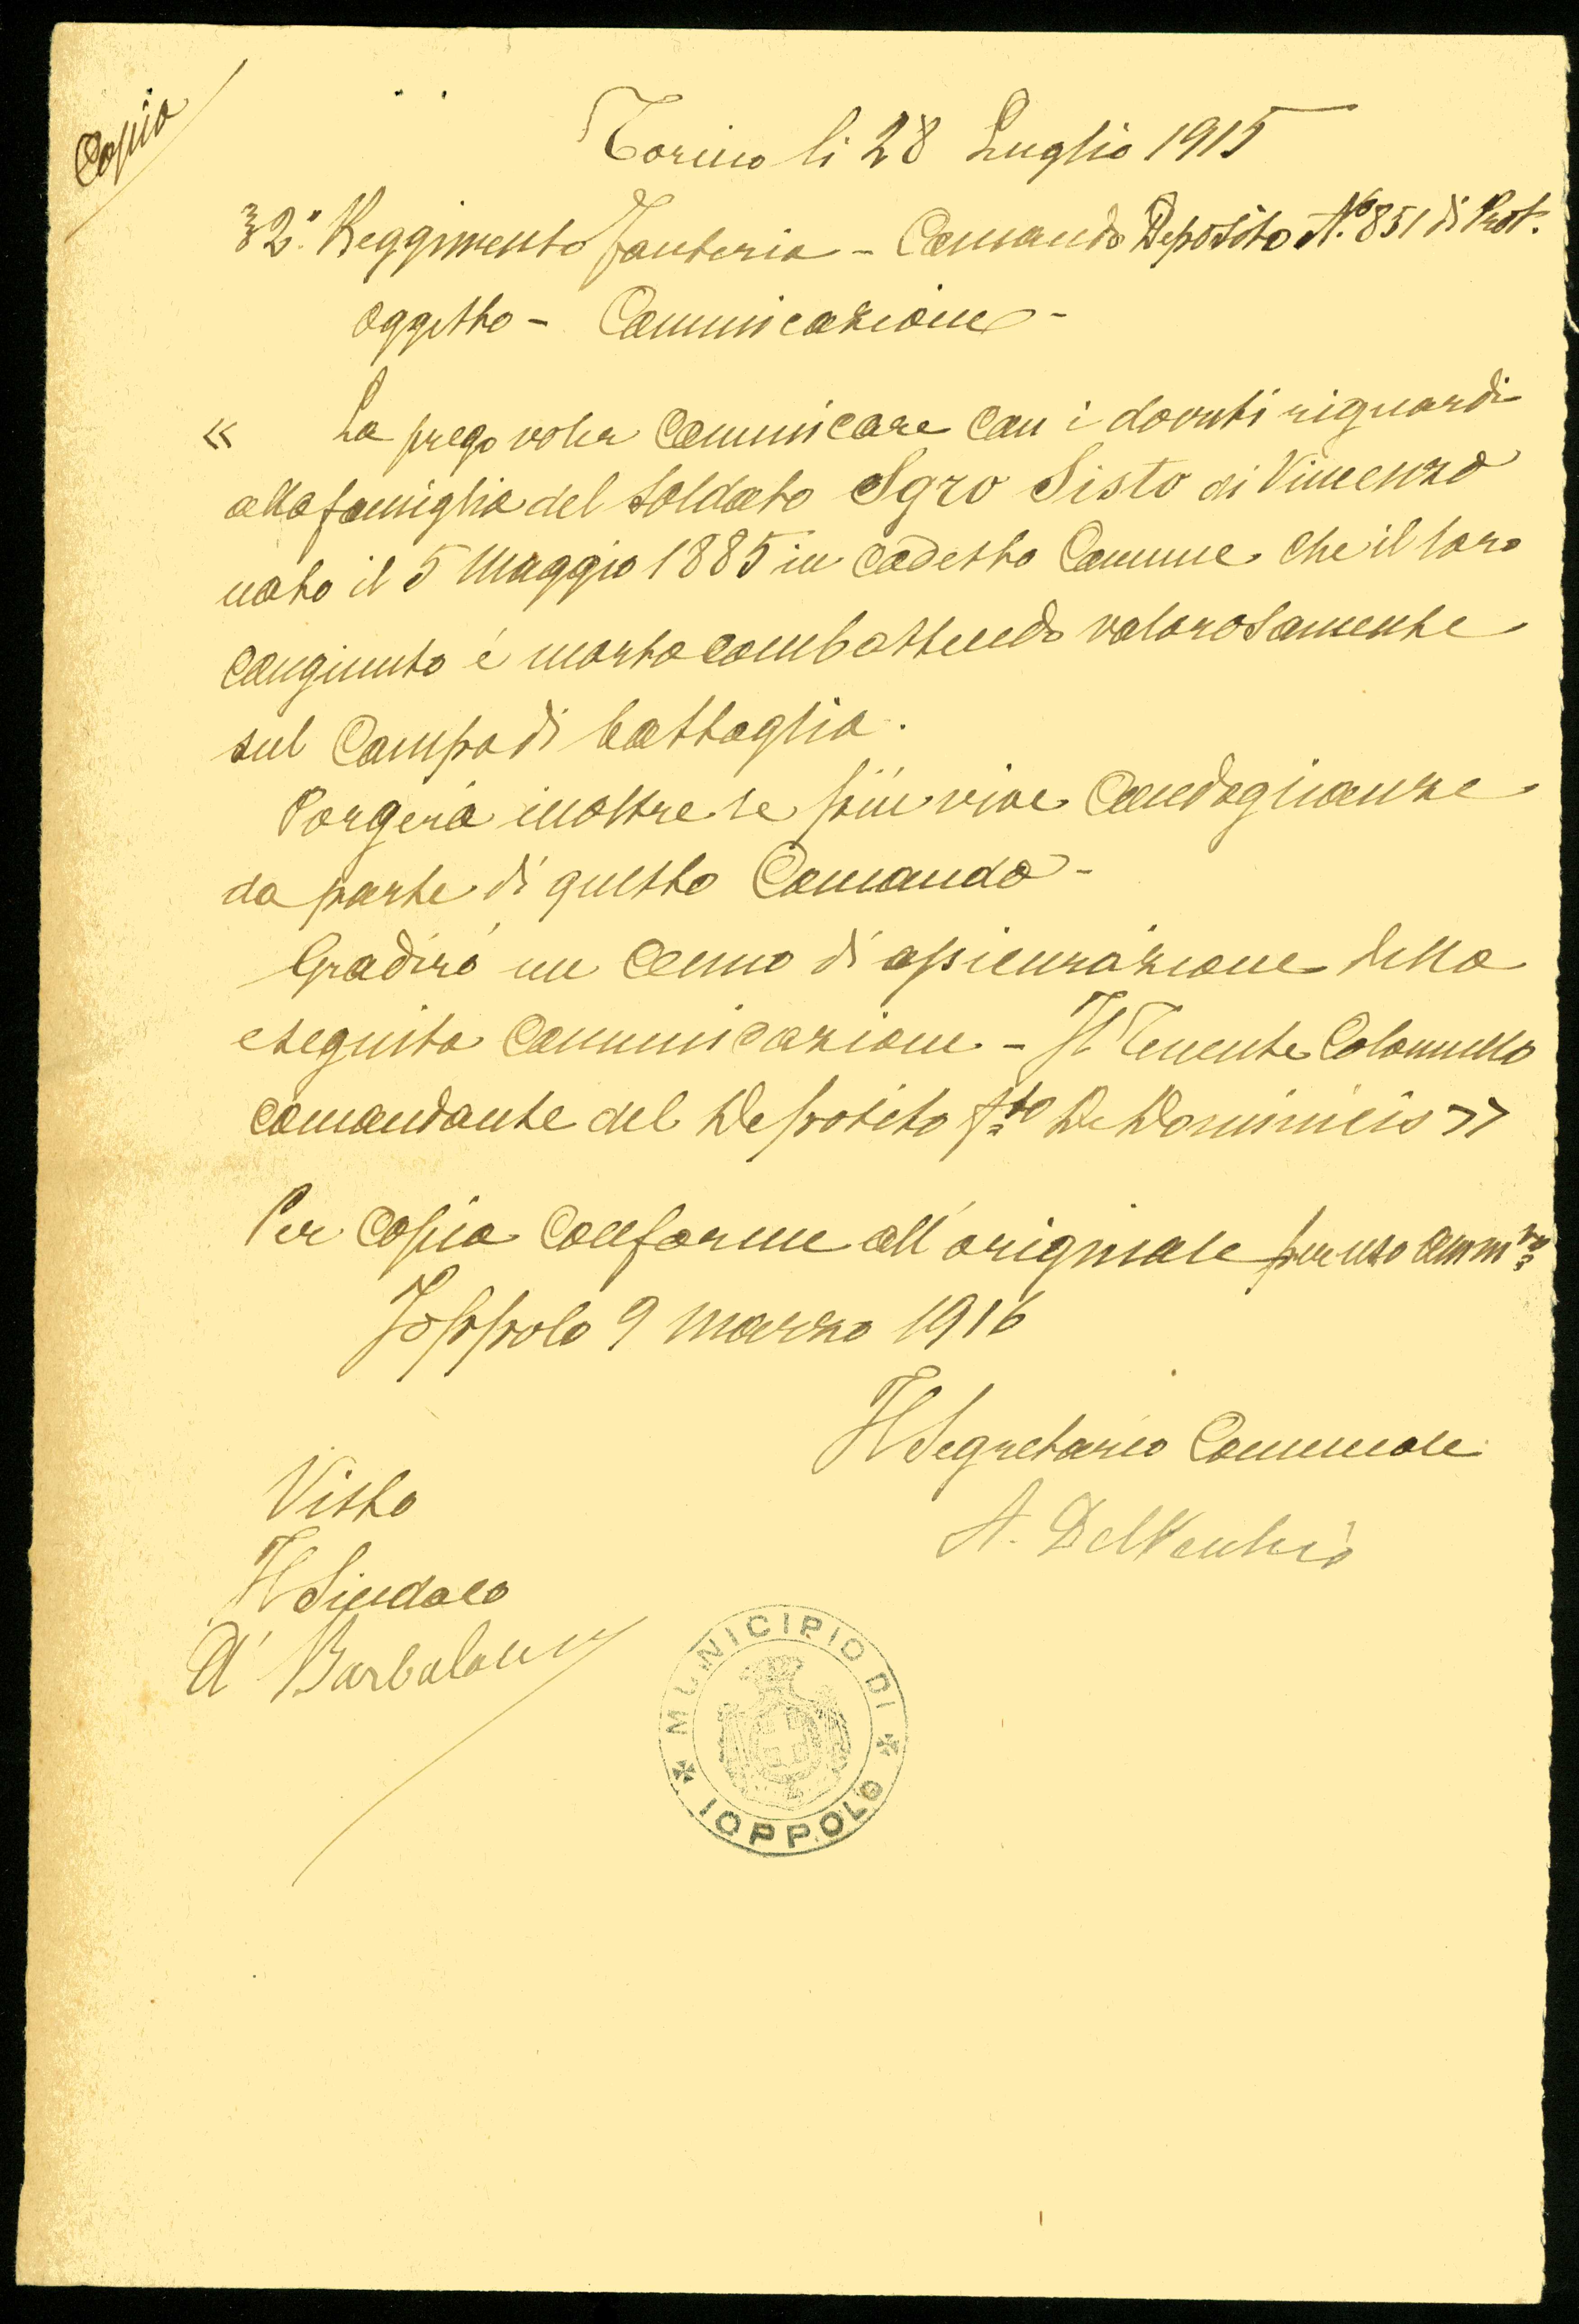 Copia
Torino li 28 Luglio 1915
32° Reggimento Fanteria - Comando Deposito N.º 851 di Prot.
Oggetto - Comunicazione -
« La prego voler comunicare con i dovuti riguardi
alla famiglia del soldato Sgro Sisto di Vincenzo
nato il 5 Maggio 1885 in codesto Comune che il loro
congiunto é morto combattendo valorosamente
sul Campo di battaglia.
Porgerà inoltre le più vive condoglianze
da parte di questo Comando -
Gradirò un cenno di assicurazione della
eseguita comunicazione - Il Tenente Colonnello
comandante del Deposito f.to De Dominicis »
Per copia conforme all'originale per uso amm.vo
Joppolo 9 marzo 1916
Il Segretario Comunale
A. DelVecchio
Visto
Il Sindaco
MUNICIPIO DI
IOPPOLO